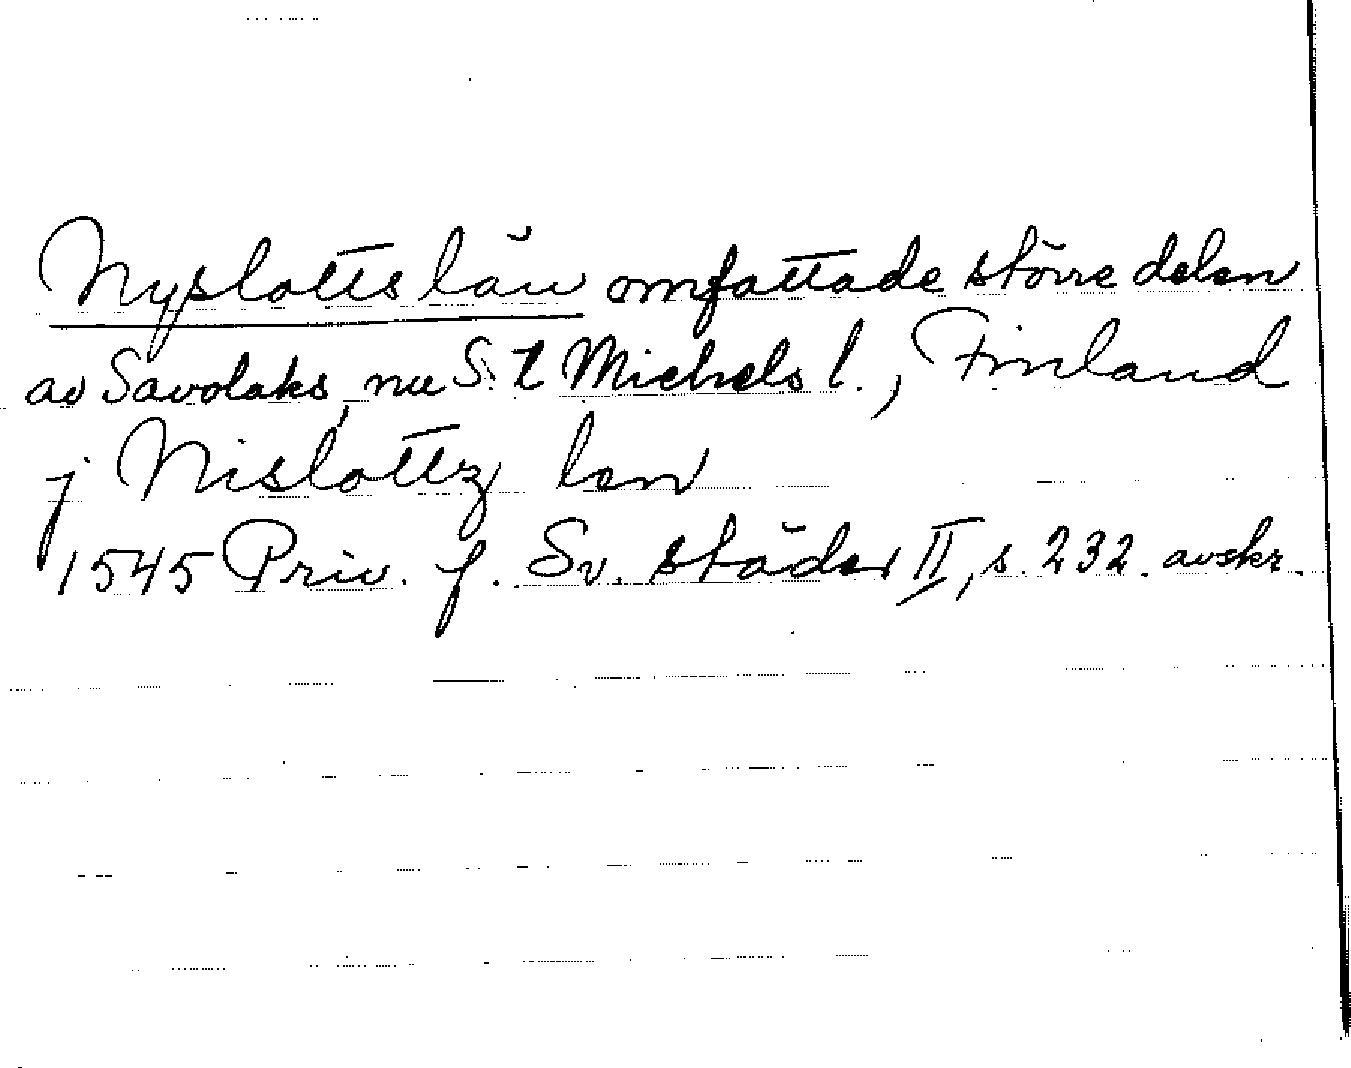 Nyslotts län omfattade större delen
av Savolaks, nu S:t Michels l., Finland
j Nislottz len
1545 Priv. f. Sv. städer II, s. 232. avskr.